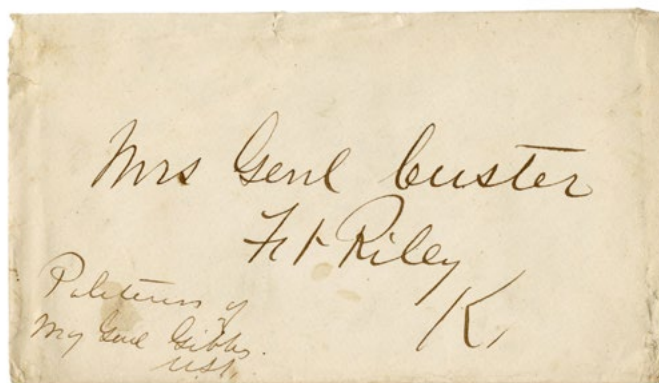 Mrs Genl Custer
Ft Riley
K.
Politeness of
Maj Genl Gibbs.
USA.